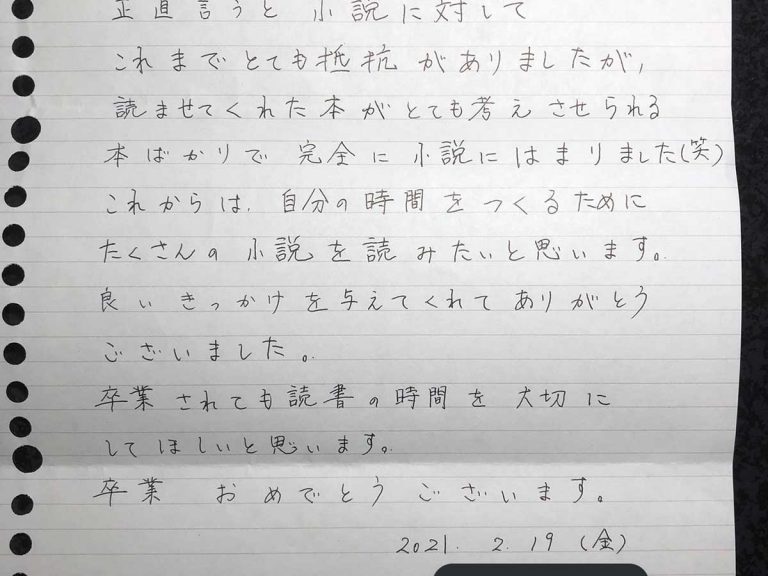 正直言うと 小説に対して
これまでとても抵抗がありましたが,
読ませてくれた本がとても考えさせられる
本ばかりで 完全に小説にはまりました(笑)
これからは、自分の時間をつくるために
たくさんの小説を読みたいと思います。
良いきっかけを与えてくれてありがとう
ございました。
卒業されても読書の時間を大切に
してほしいと思います。
卒業 おめでとうございます。
2021. 2. 19 (金)